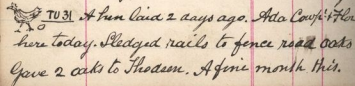 TU 31 A hen laid 2 days ago. Ada Cow
here today. Sledged rails to fence road oaks
Gave 2 oaks to Thodsen. A fine month this.